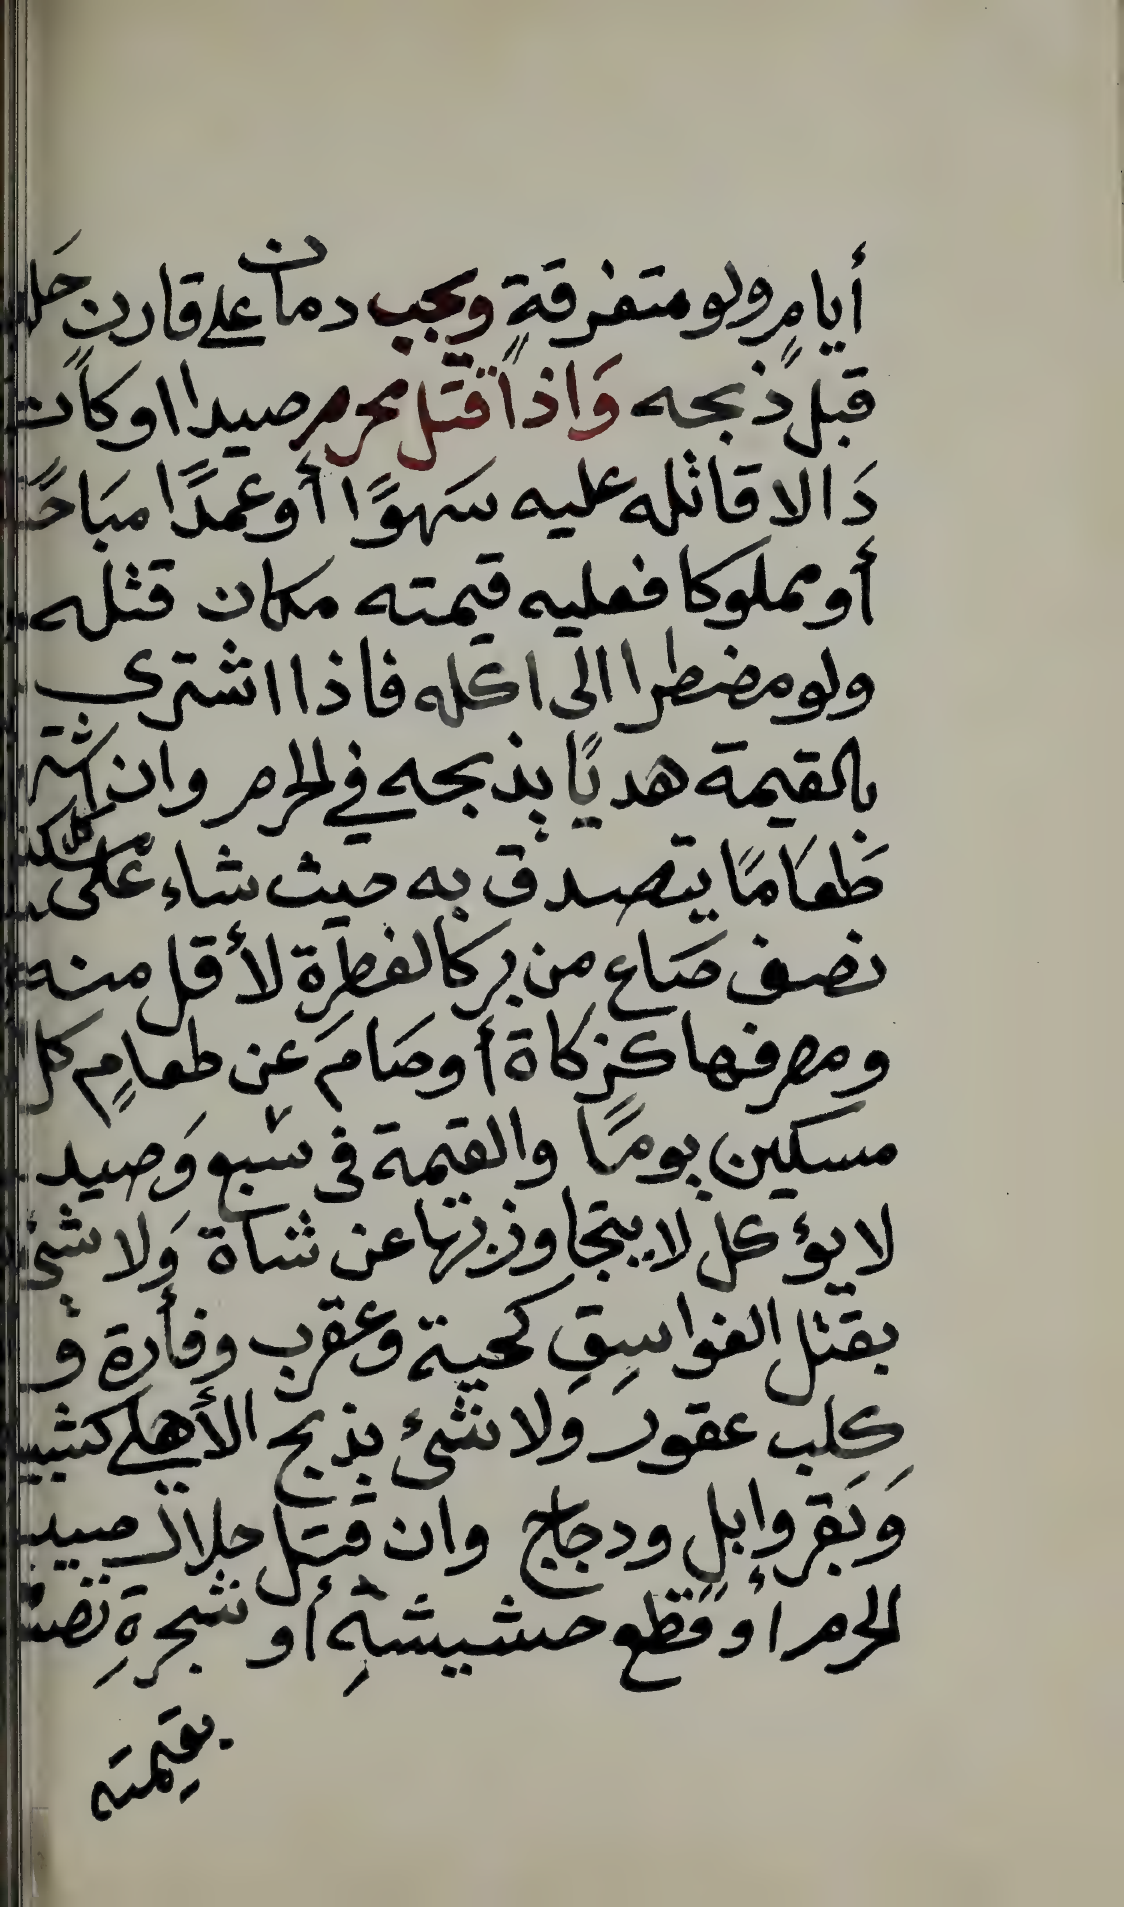 أيامٍ ولو متفرقةٍ ويجب دمان على قارن حلق
قبل ذبحه وَاذا قتل محرم صيدا او كان
دَالا قاتله عليه سهوًا أو عمدًا مبَاحًا
أو مملوكا فعليه قيمته مكان قتله
ولو مضطرا الى اكله فاذا اشترى
بالقيمة هديًا يذبحه في الحرم وان اشترى
طَعَامًا يتصدق به حيث شاء عَلى كل مسكين
نصف صَاع من بر كالفطرة لأقل منه
ومصرفها كزكاة أو صَامَ عن طعامٍ كل
مسكين يومًا والقيمة فى سبع وَصيد
لا يؤكل لا يتجاوز بها عن شاة وَلا شئ
بقتل الفواسِقِ كحية وعقرب وفأرة و
كلب عقور ولا شئ بذبح الأهلي كشياه
وَبَقر وابل ودجاج وان قتل حلال صيد
الحرم أو قطع حشيشةِ أو شجرةِ تصدق
بقيمته